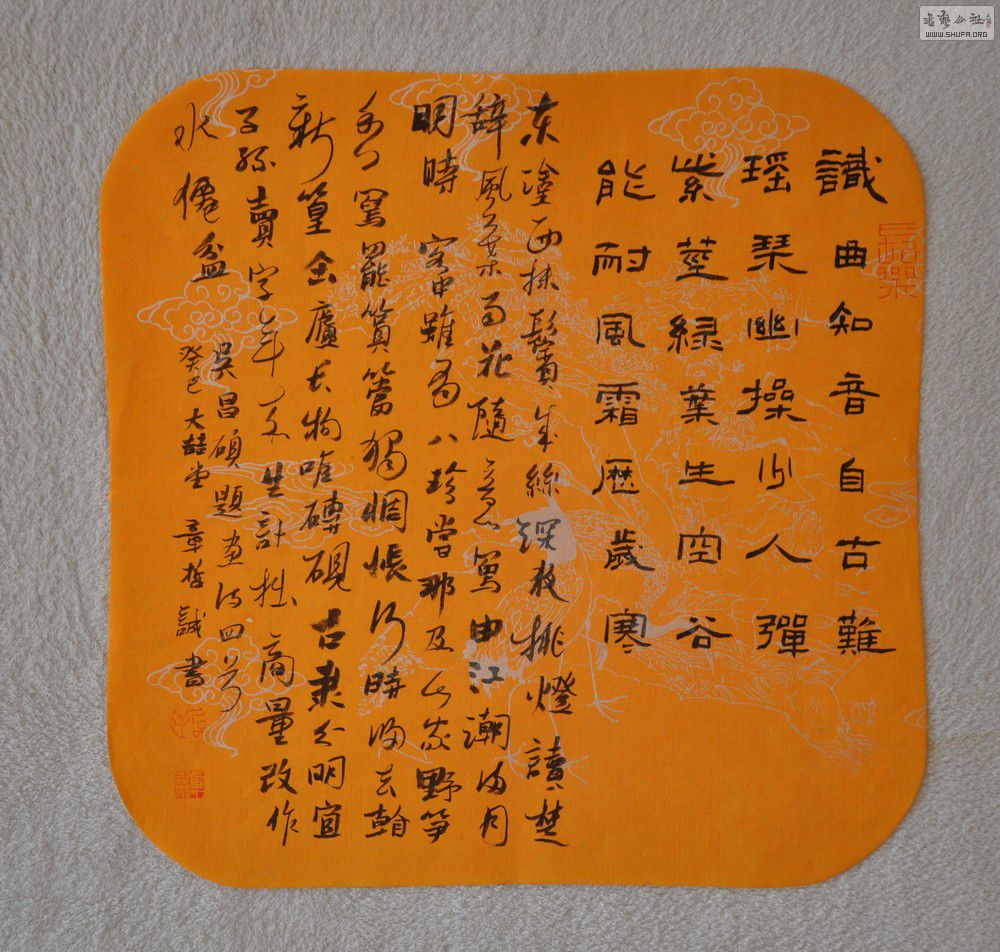 識曲知音自古難
瑶琴幽操少人彈
紫莖緑葉生空谷
能耐風霜歷歲寒
东塗西抹鬢成絲深夜挑燈讀楚
辞風葉雨花隨意寫曲江潮满月
明時 客中雖有八珍嘗那及山家野笋
香寫罷篔簹獨惆悵何時歸去看
新篁缶廬長物唯磚硯古隶分明宜
子孫賣字年来生計拙商量改作
水僊盆
吴昌碩題画诗四首
癸巳大喆堂 章哲誠書
書藝公社
WWW.SHUFA.ORG